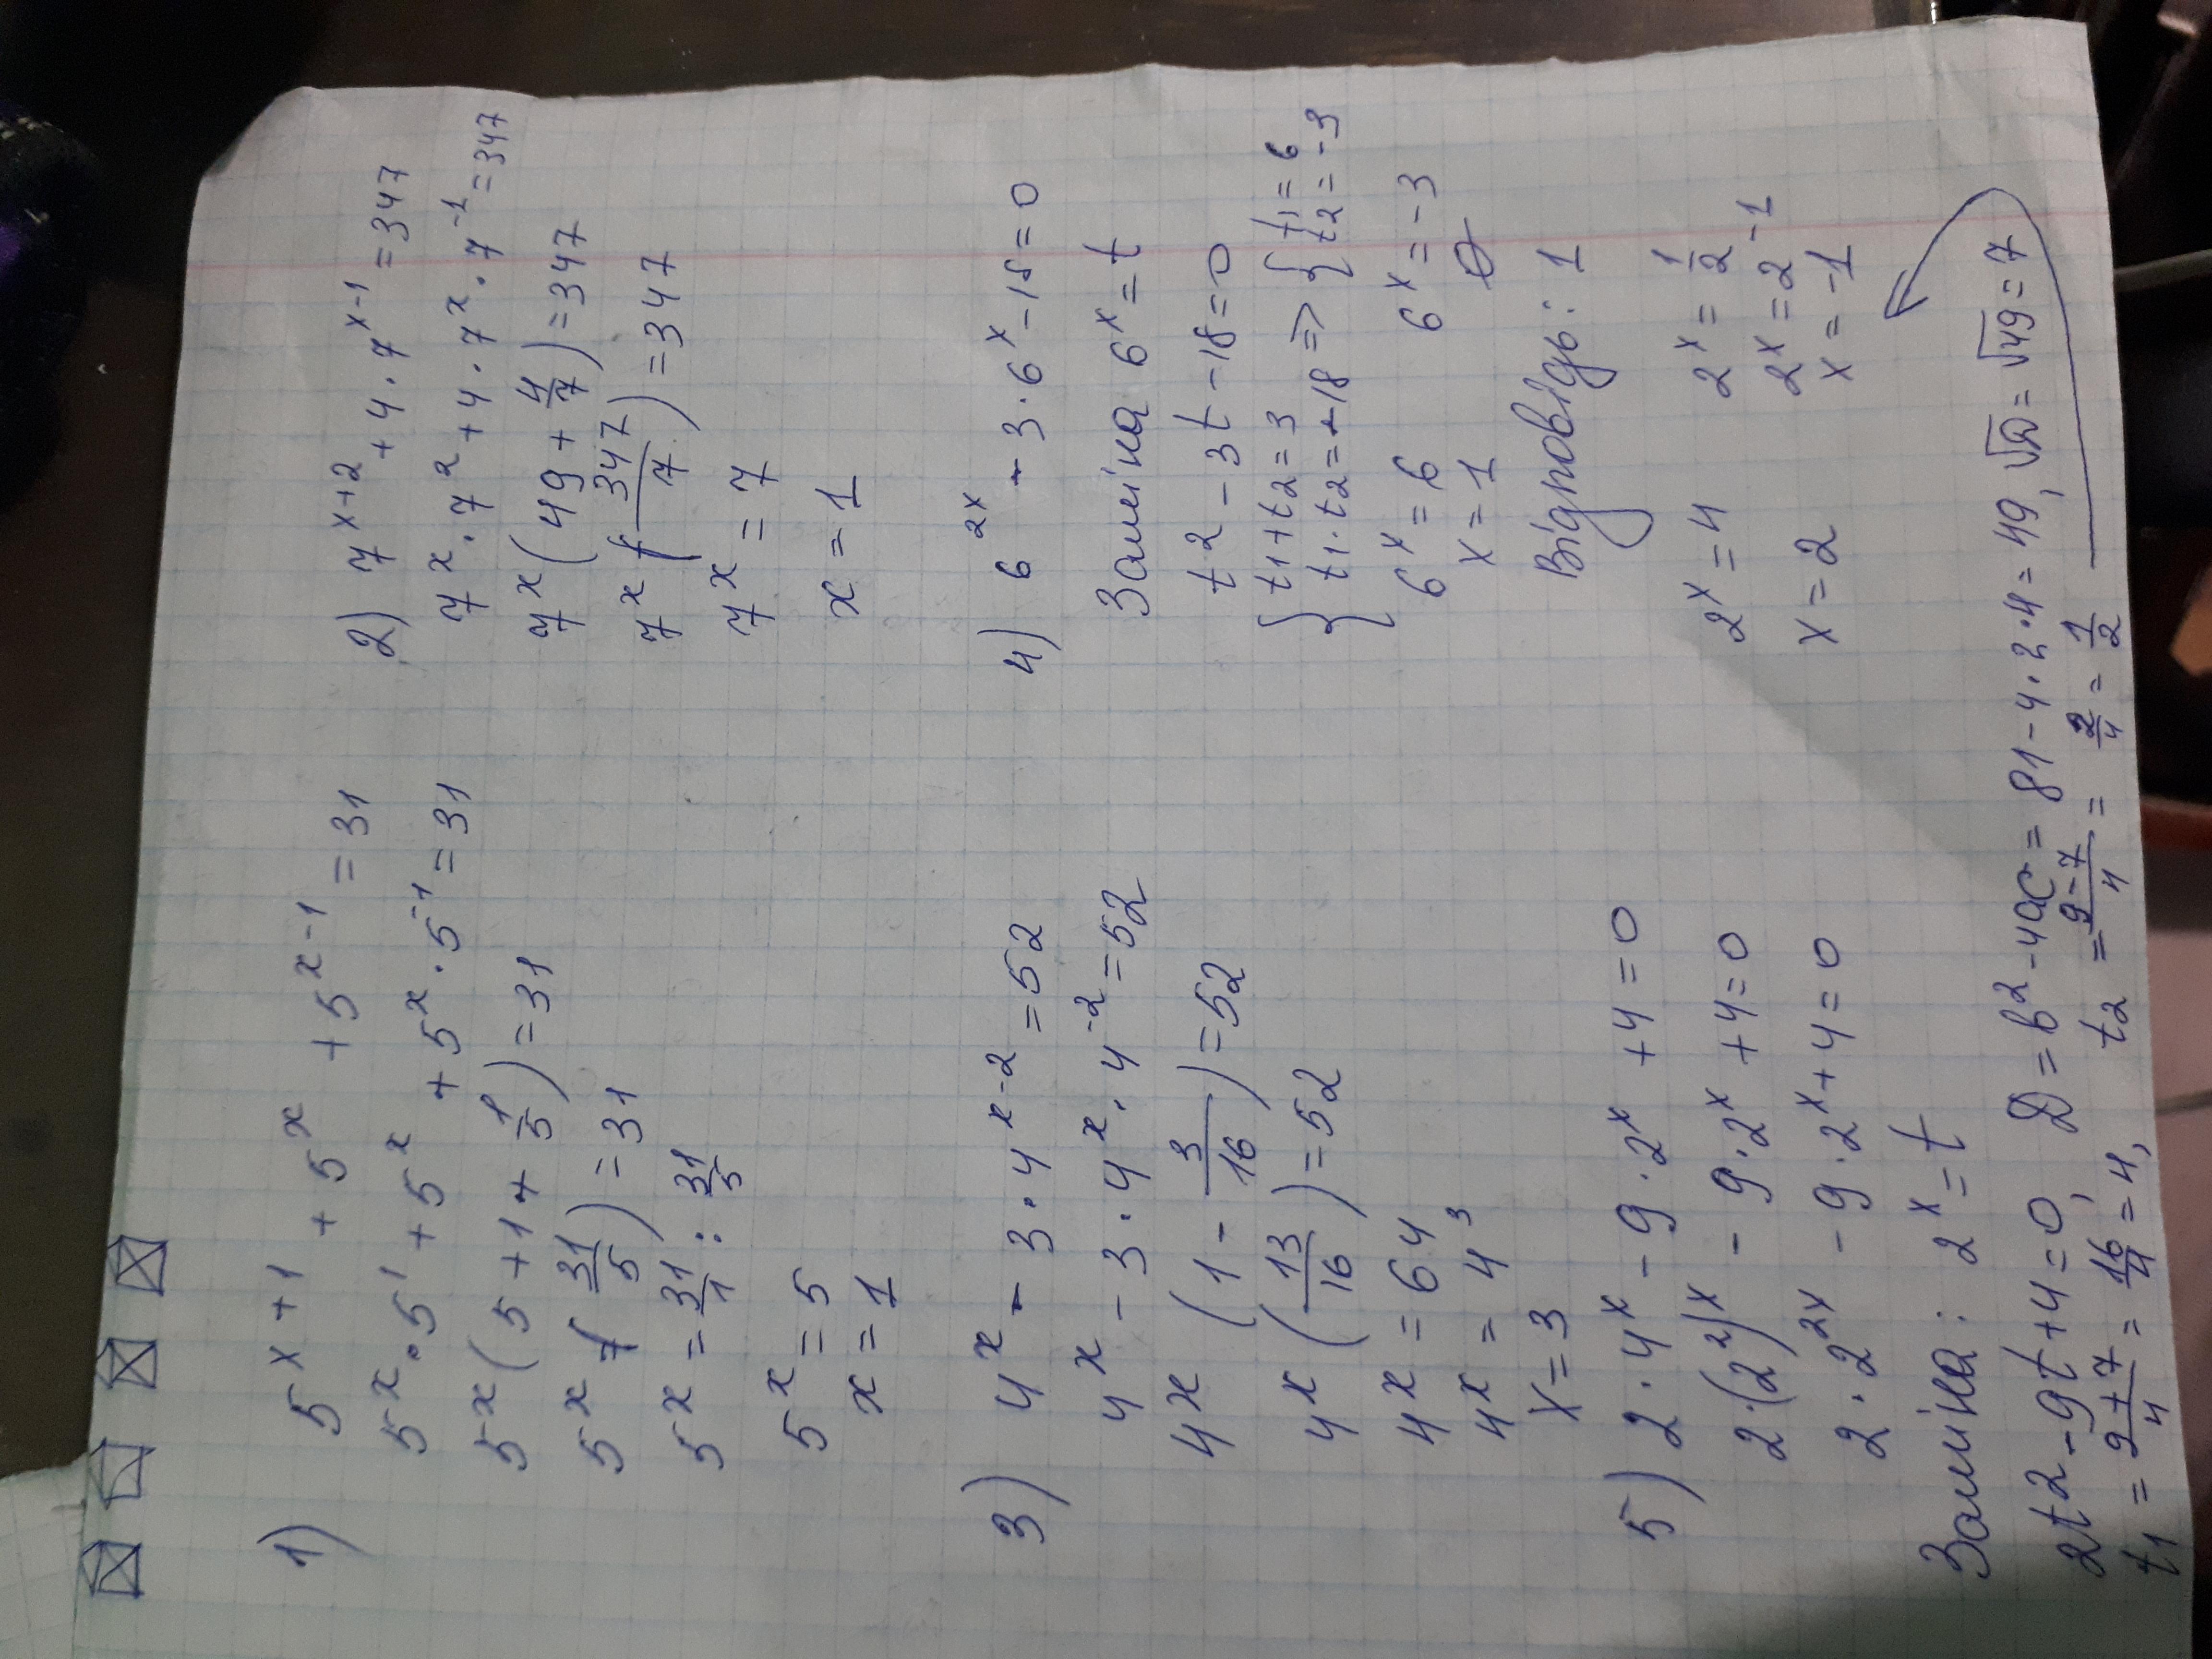 1) 5^(x+1) + 5^x + 5^(x-1) = 31
5^x · 5^1 + 5^x + 5^x · 5^-1 = 31
5^x (5 + 1 + 1/5) = 31
5^x (31/5) = 31
5^x = 31/1 : 31/5
5^x = 5
x = 1
2) 7^(x+2) + 4 · 7^(x-1) = 347
7^x · 7^2 + 4 · 7^x · 7^-1 = 347
7^x (49 + 4/7) = 347
7^x (347/7) = 347
7^x = 7
x = 1
3) 4^x - 3 · 4^(x-2) = 52
4^x - 3 · 4^x · 4^-2 = 52
4^x (1 - 3/16) = 52
4^x (13/16) = 52
4^x = 64
4^x = 4^3
x = 3
4) 6^(2x) - 3 · 6^x - 18 = 0
Заміна 6^x = t
t^2 - 3t - 18 = 0
{ t1 + t2 = 3
t1 · t2 = -18 => { t1 = 6
t2 = -3
6^x = 6   6^x = -3
x = 1   Ø
Відповідь: 1
5) 2 · 4^x - 9 · 2^x + 4 = 0
2 · (2^2)^x - 9 · 2^x + 4 = 0
2 · 2^(2x) - 9 · 2^x + 4 = 0
Заміна: 2^x = t
2t^2 - 9t + 4 = 0, D = b^2 - 4ac = 81 - 4 · 2 · 4 = 49, √D = √49 = 7
t1 = (9+7)/4 = 16/4 = 4, t2 = (9-7)/4 = 2/4 = 1/2
2^x = 4   2^x = 1/2
x = 2   2^x = 2^-1
x = -1